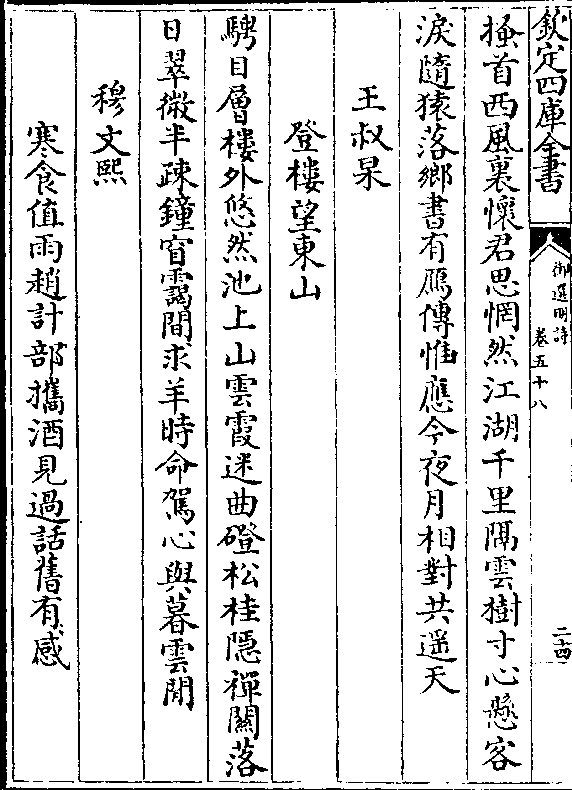 欽定四庫全書
御選明詩
卷五十八
二十四
搔首西風裏懷君思惘然江湖千里隔雲樹寸心懸客
淚隨猿落鄉書有鴈傳惟應今夜月相對共遥天
王叔杲
登樓望東山
騁目層樓外悠然池上山雲霞迷曲磴松桂隠禪關落
日翠微半疎鐘窅靄間求羊時命駕心與暮雲閒
穆文熙
寒食值雨趙計部攜酒見過話舊有感